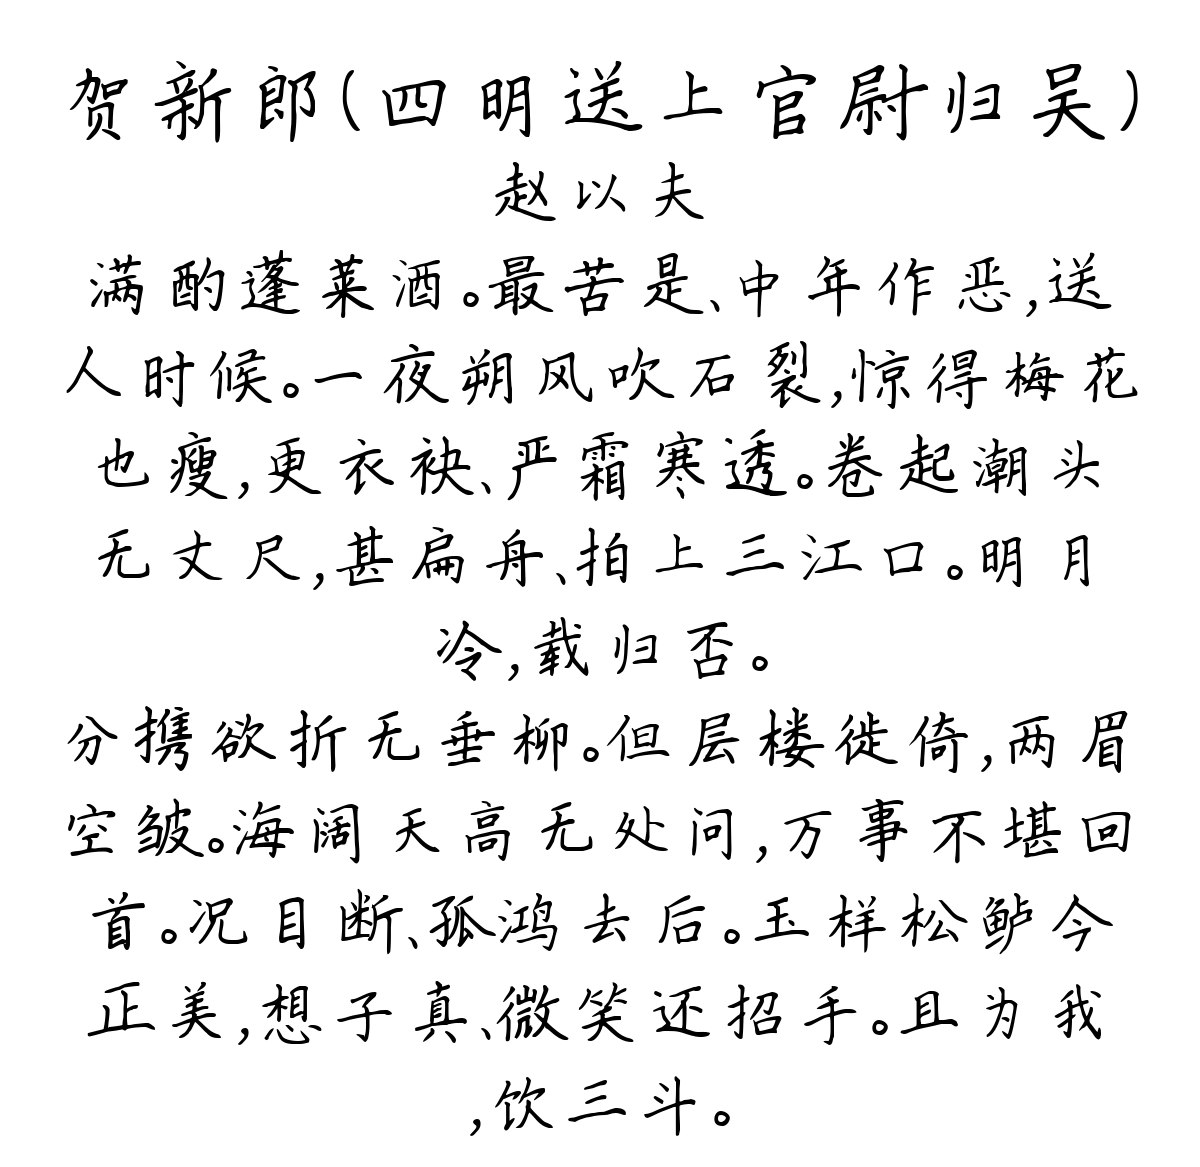 贺新郎(四明送上官尉归吴)
赵以夫
满酌蓬莱酒。最苦是、中年作恶,送
人时候。一夜朔风吹石裂,惊得梅花
也瘦,更衣袂、严霜寒透。卷起潮头
无丈尺,甚扁舟、拍上三江口。明月
冷,载归否。
分携欲折无垂柳。但层楼徙倚,两眉
空皱。海阔天高无处问,万事不堪回
首。况目断、孤鸿去后。玉样松鲈今
正美,想子真、微笑还招手。且为我
,饮三斗。